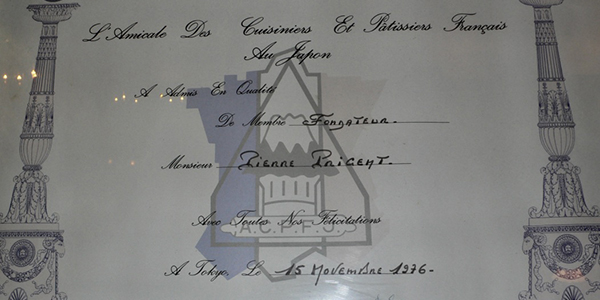 L'Amicale Des Cuisiniers Et Pâtissiers Français
Au Japon
A Admis En Qualité
De Membre Fondateur.
Monsieur Pierre Prigent.
Avec Toutes Nos Félicitations
A.C.P.F.J.
A Tokyo, Le 15 Novembre 1976-